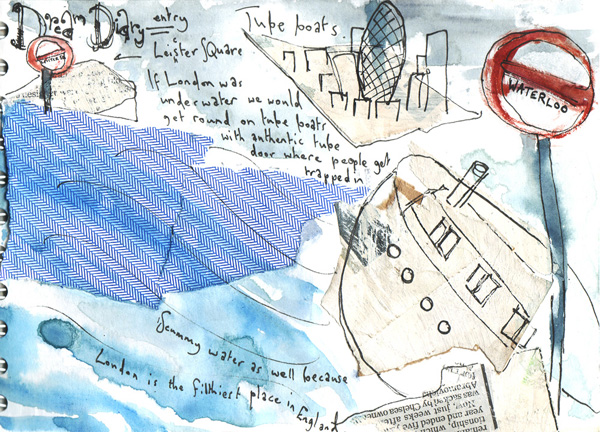 Dream Diary entry
Leister Square
Tube boats.
If London was
underwater we would
get round on tube boats
with authentic tube
door where people get
trapped in
WATERLOO
Scummy water as well because
London is the filthiest place in England
year and ended five
Now, just weeks after
was sacked by Chelsea owner
Abramovich